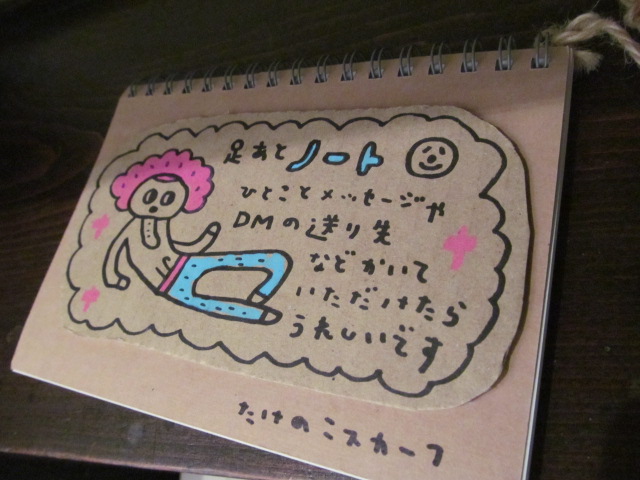 足あとノート
ひとことメッセージや
DMの送り先
などかいて
いただけたら
うれしいです
たけのこスカーフ